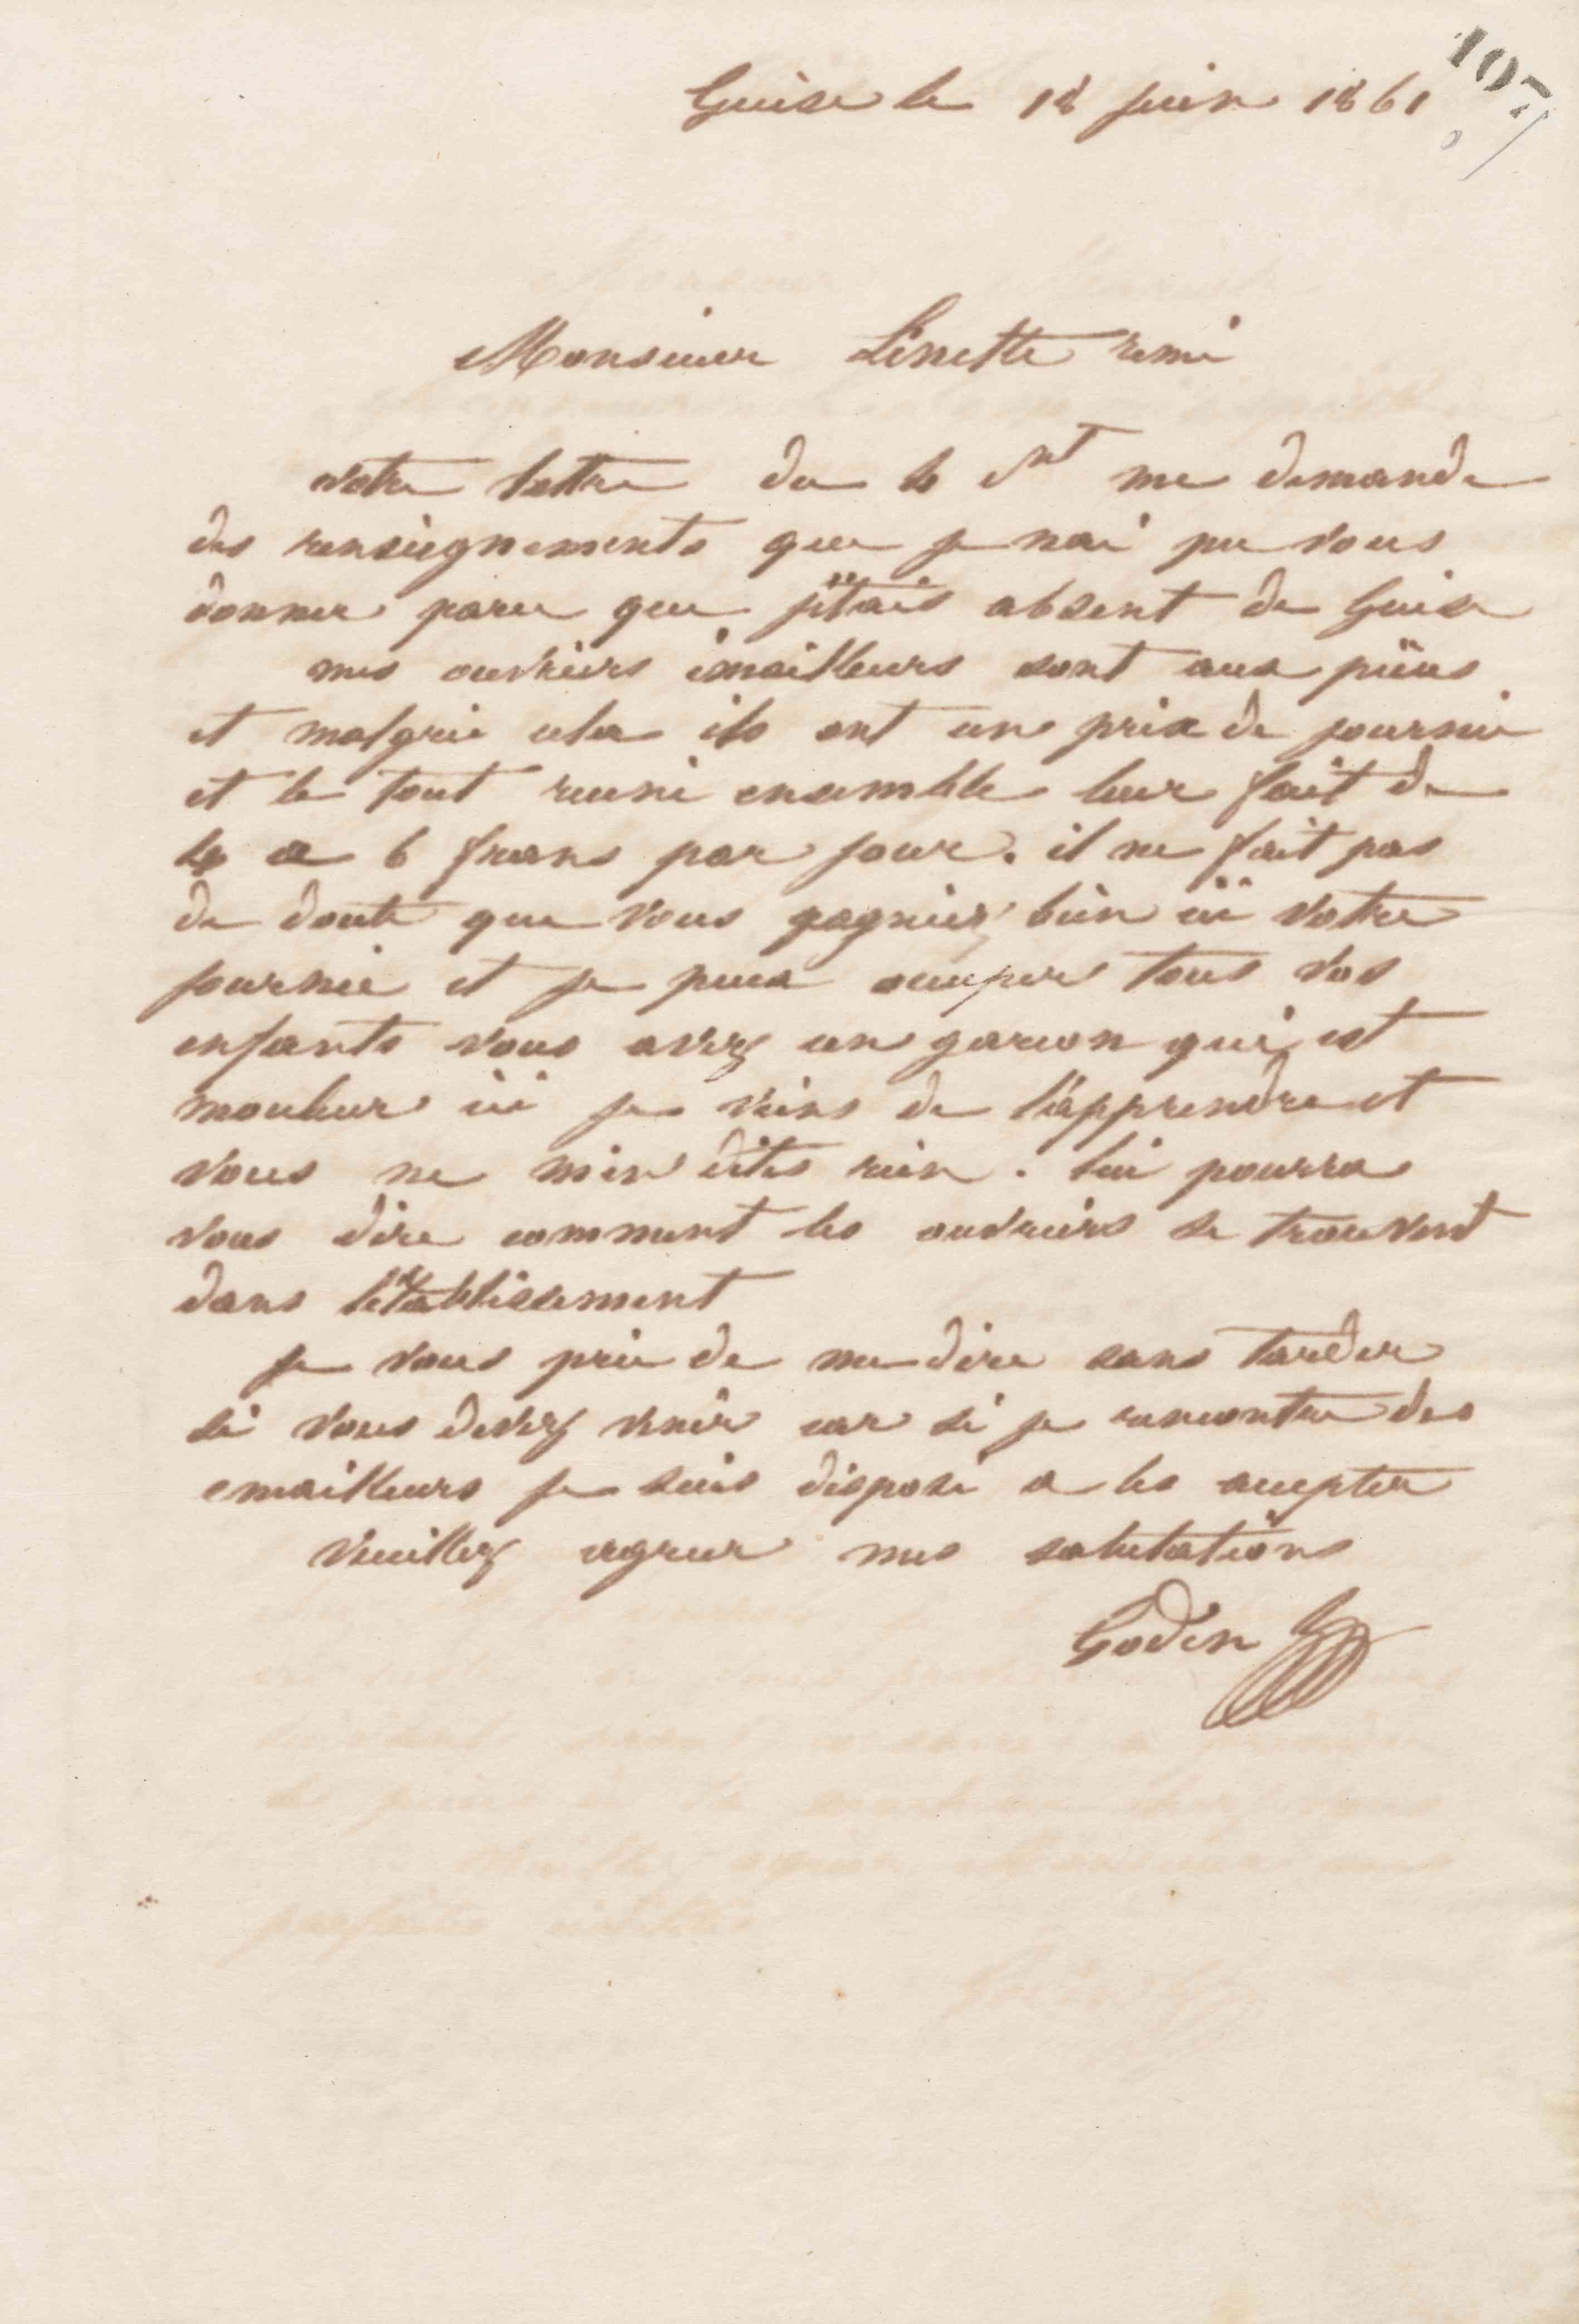 107
Guise le 18 juin 1861
Monsieur Linette remi
votre lettre du 4 ct me demande
des renseignements que je nai pu vous
donner parce que j'étais absent de Guise
mes ouvriers émailleurs sont aux pièces
et malgrée cela ils ont un prix de journée
et le tout reuni ensemble leur fait de
4 a 6 francs par jour. il ne fait pas
de doute que vous gagniez bien ici votre
journée et je peux occuper tous vos
enfants vous avez un garcon qui est
mouleur ici je viens de l'apprendre et
vous ne m'en dites rien. lui pourra
vous dire comment les ouvriers se trouvent
dans l'établissement
je vous prie de me dire sans tarder
si vous devez venir car si je rencontre des
emailleurs je suis disposé a les accepter
Veuillez agreer mes salutations
Godin